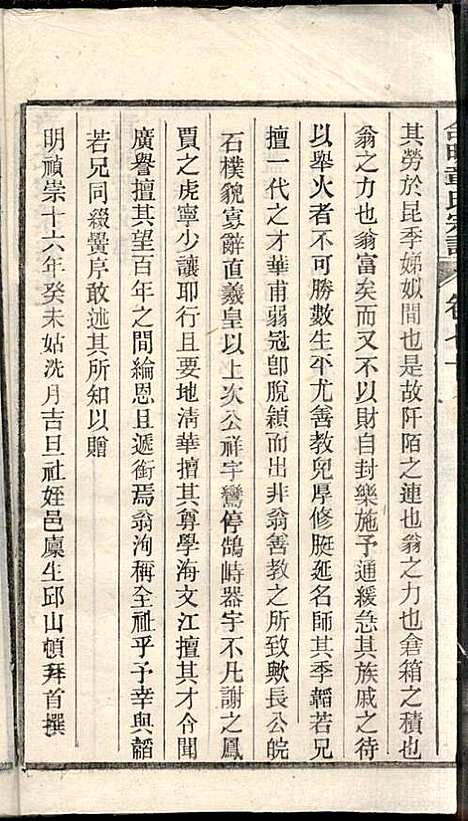 其勞於昆季娣姒間也是故阡陌之連也翁之力也倉箱之積也
翁之力也翁富矣而又不以財自封樂施予通緩急其族戚之待
以舉火者不可勝數生平尤善教兒厚修脡延名師其季韜若兄
擅一代之才華甫弱冠卽脫穎而出非翁善教之所致歟長公皖
石樸貌寡辭直羲皇以上次公祥宇鸞停鵠峙器宇不凡謝之鳳
賈之虎寧少讓耶行且要地淸華擅其尊學海文江擅其才令聞
廣譽擅其望百年之間綸恩且遞銜焉翁洵稱全祉乎予幸與韜
若兄同綴黌序敢述其所知以贈
明禎崇十六年癸未姑洗月吉旦社姪邑廩生邱山頓拜首撰